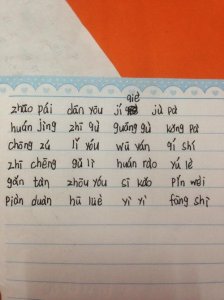 qiè
zhāo pái dān yōu jí jù pà
huán jìng zhī qù guǎng gù kǒng pà
chōng zú lǐ yóu wū yán qí shí
zhī chēng gǔ lì huán rào yú lè
gǎn tàn zhōu yóu sī kǎo pǐn wèi
piàn duàn hū luè yì yì fāng shì